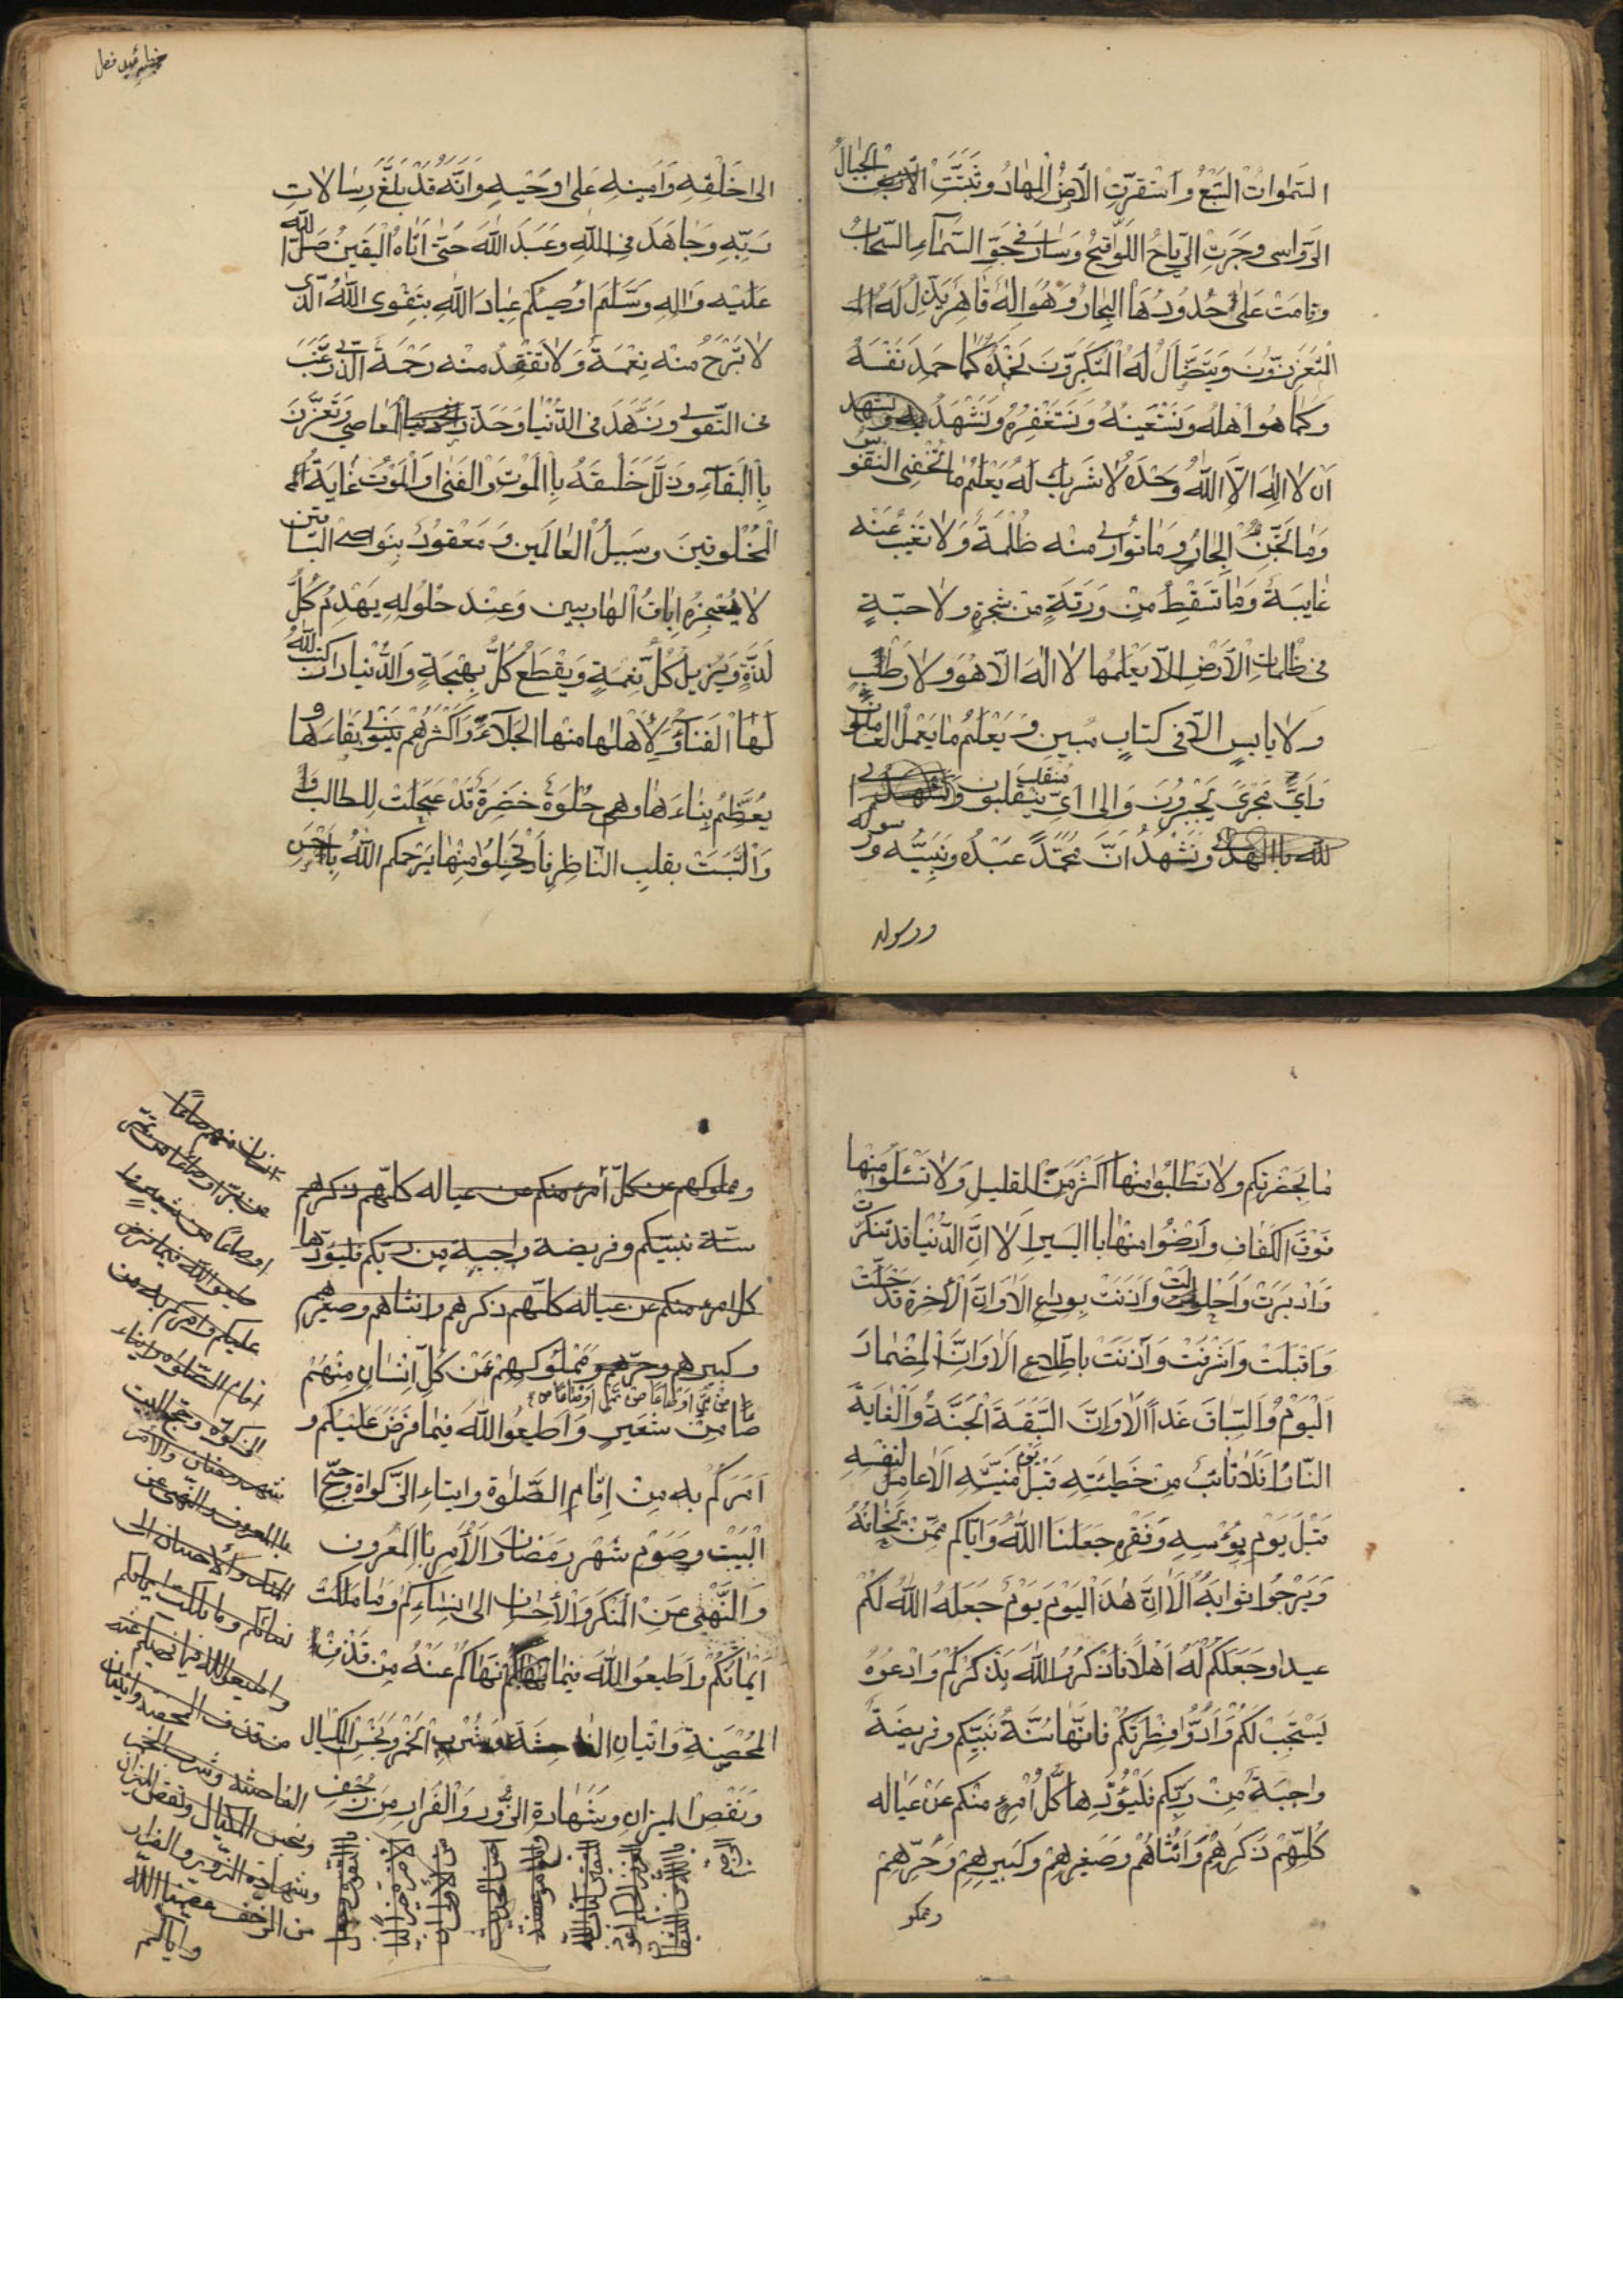 السموات السبع واستقرت الارض المهاد وثبتت الجبال
الرواسى وجرت الرياح اللواقح وسار في جو السماء السحاب
وقامت على حدودها البحار وهو اله قاهر يذل له
المتعززون ويتضاءل له المتكبرون نحمده كما حمد نفسه
وكما هو اهله ونستعينه ونستغفره ونشهد
ان لا اله الا الله وحده لا شريك له يعلم ما تخفى النفوس
وما تجن البحار وما توارى منه ظلمة ولا تغيب عنه
غايبة وما تسقط من ورقة من شجرة ولا حبة
في ظلمات الارض الا يعلمها لا اله الا هو ولا رطب
ولا يابس الا فى كتاب مبين ويعلم ما يعمل العاملون
واي مجرى يجرون والى اي منقلب ينقلبون ونستهدى ا
لله باالهدى ونشهد ان محمدا عبده ونبيه ورسوله
ورسوله
الى خلقه وامينه على وحيه وانه قد بلغ رسالات
ربه وجاهد في الله وعبد الله حتى اتاه اليقين صلى الله
عليه واله وسلم اوصيكم عباد الله بتقوى الله الذى
لا تبرح منه نعمة ولا تفقد منه رحمة الذى رغب
فى التقوى وزهد فى الدنيا وحذر المعاصي وتعزز
باالبقاء وذلل خلقه باالموت والفنا والموت غاية
المخلوقين وسبيل العالمين ومعقود بنواصى الباقين
لا يعجزه اباق الهاربين وعند حلوله يهدم كل
لذة ويزيل كل نعمة ويقطع كل بهجة والدنيا دار كتب الله
لها الفناء ولاهلها منها الجلاء واكثرهم ينوى بقاءها و
يعظم بناءها وهى حلوة خضرة قد عجلت للطالب وا
والتبست بقلب الناظر فارتحلوا منها يرحمكم الله باحسن
ما بحضرتكم ولا تطلبوا منها اكثر من القليل ولا تسئلوا منها
فوق الكفاف وارضوا منها باليسير الا ان الدنيا قد تنكرت
وادبرت واحلولت واذنت بوداع الا وان الاخرة قد حلت
واقبلت واشرفت واذنت باطلاع الا وان المضمار
اليوم والسباق غدا الا وان السبقة الجنة والغاية
النار افلا تائب من خطيئته قبل يوم منيته الا عامل لنفسه
قبل يوم بؤسه وفقره جعلنا الله واياكم ممن يخافه
ويرجوا ثوابه الا ان هذا اليوم يوم جعله الله لكم
عيدا وجعلكم له اهلا فاذكروا الله يذكركم وادعوه
يستجب لكم وادوا فطرتكم فانها سنة نبيكم وفريضة
واجبة من ربكم فليؤدها كل امرئ منكم عن عياله
كلهم ذكرهم وانثاهم وصغيرهم وكبيرهم وحرهم
ومملوكهم عن كل امرء منكم عن عياله كلهم ذكرهم
سنة نبيكم وفريضة واجبة من ربكم فليؤدها
كل امرء منكم عن عياله كلهم ذكرهم وانثاهم وصغيرهم
وكبيرهم وحرهم ومملوكهم عن كل انسان منهم
صاعا من شعير واطيعوا الله فيما فرض عليكم و
امركم به من اقام الصلوة وايتاء الزكواة وحج ا
البيت وصوم شهر رمضان والامر باالمعروف
والنهى عن المنكر والاحسان الى نساءكم وما ملكت
ايمانكم واطيعوا الله فيما نهاكم عنه من قذف
المحصنة واتيان الفاحشة وشرب الخمر وبخس المكيال
ونقص الميزان وشهادة الزور والفرار من زحف
انسان منهم صاعا
من بر او صاعا من تمر
او صاعا من شعير وا
طيعوا الله فيما فرض
عليكم وامركم به من
اقام الصلوة وايتاء
الزكوة وحج البيت
شهر رمضان والامر
باالمعروف والنهى عن
المنكر والاحسان الى
نسائكم وما ملكت ايمانكم
واطيعوا الله فيما نهيكم عنه
من قذف المحصنة واتيان
الفاحشة وشرب الخمر
وبخس المكيال ونقص الميزان
وشهادة الزور والفرار
من الزحف عصمنا الله
واياكم